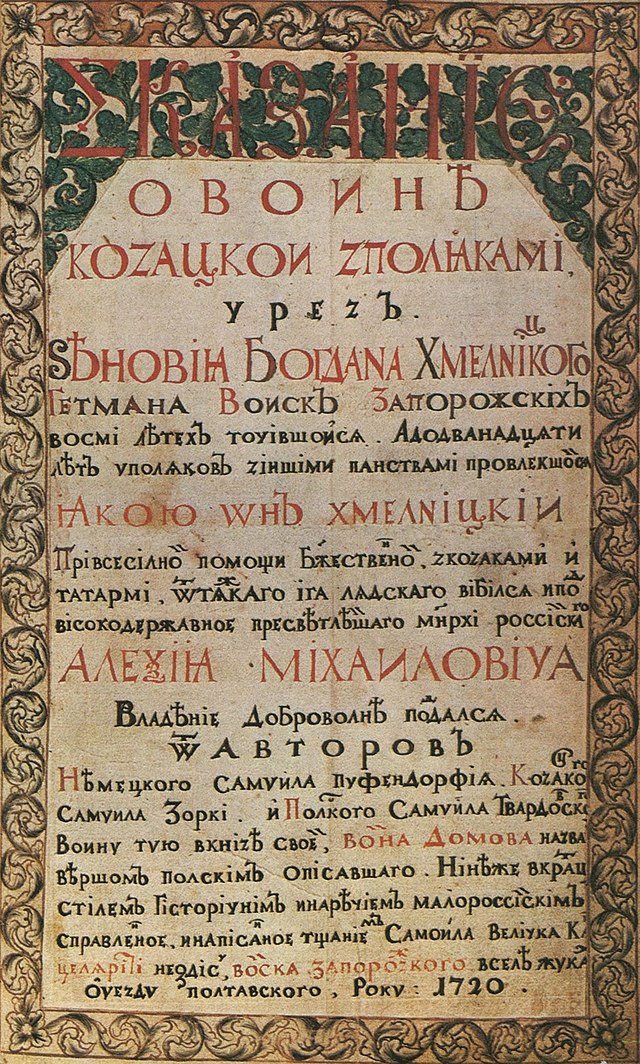 СКАЗАНІЕ
О ВОИНѢ
КОZАЦКОИ ZПОЛѦКАМІ,
УРЕZЪ.
ЅѢНОВІЯ БОГДАНА ХМЕЛНІЦКОГО
ГЕТМАНА ВОИСКЪ ЗАПОРОЖСКІХЪ
ВОСМІ ЛѢТЕХЪ ТОЧІВШОЙСЯ. АДОДВАНАДЦЯТИ
ЛѢТЪ УПОЛЯКОВЪ ZІНШІМИ ПАНСТВАМІ ПРОВЛЕКШОЙСЯ
ЯКОЮ ѠНЪ ХМЕЛНІЦКІИ
Прівсесілной помощи Бжественной, zкоzаками и
татармі, ѿтяжкаго іга лядскаго вібілся ипод
вісокодержавное пресвѣтлѣйшаго мнрхі россійскіго
АЛЕѮІЯ МІХАИЛОВІЧА
Владѣніе доброволнѣ поддался.
ѾАВТОРОВЪ
Нѣмецкого Самуйла Пуфендорфія. Коzацкого
Самуила Зоркі. и Полского Самуйла Твардоского
Воину тую вкнізѣ своей, Война Домова назва
вѣршомъ полскімъ опісавшаго. Нінѣже вкратцѣ
стілемъ гісторічнімъ инарѣчіемъ малороссійскімъ
справленное, инапісанное тщаніемъ Самоила Велічка Ка
целяріті неодіс, войска запорожкого вселѣ жука
оуезду полтавского, Року: 1720.